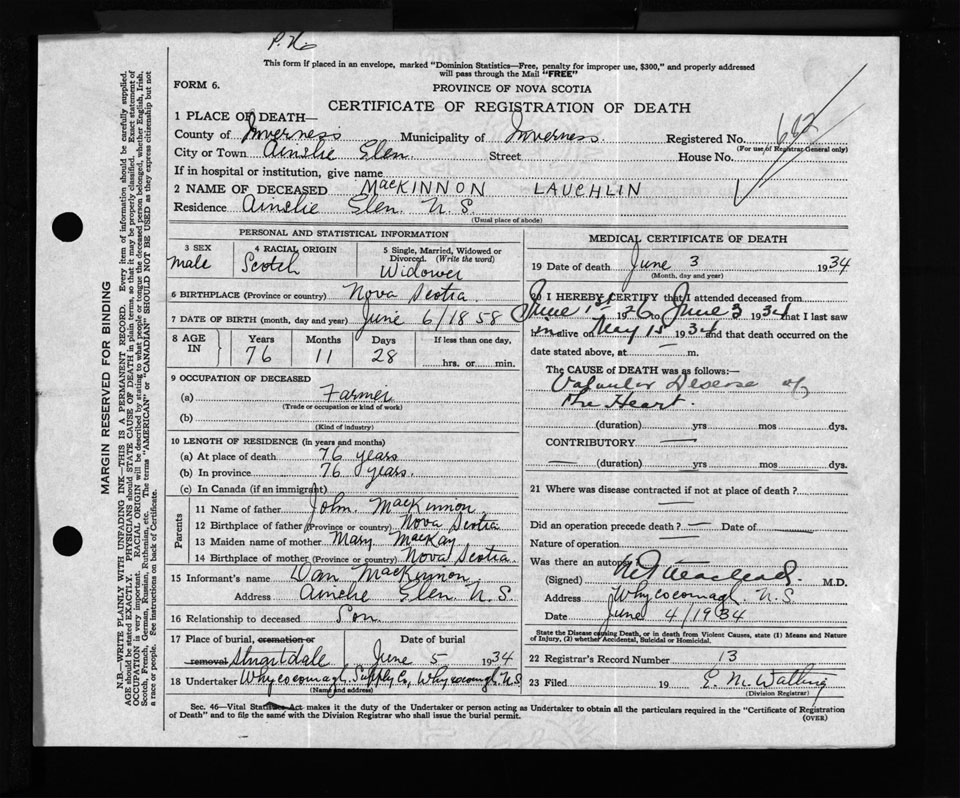 This form if placed in an envelope, marked "Dominion Statistics—Free, penalty for improper use, $300," and properly addressed
will pass through the Mail "FREE"
FORM 6.
PROVINCE OF NOVA SCOTIA
CERTIFICATE OF REGISTRATION OF DEATH
1 PLACE OF DEATH—
County of Inverness Municipality of Inverness. Registered No.
(For use of Registrar General only)
City or Town Ainslie Glen. Street House No.
If in hospital or institution, give name
2 NAME OF DECEASED MACKINNON LAUCHLIN
Residence Ainslie Glen. N.S.
(Usual place of abode)
PERSONAL AND STATISTICAL INFORMATION
3 SEX
male
4 RACIAL ORIGIN
Scotch
5 Single, Married, Widowed or
Divorced. (Write the word)
Widower
6 BIRTHPLACE (Province or country) Nova Scotia.
7 DATE OF BIRTH (month, day and year) June 6/1858
8 AGE IN
Years Months Days If less than one day,
76 11 28 hrs. or min.
9 OCCUPATION OF DECEASED
(a) Farmer
(Trade or occupation or kind of work)
(b)
(Kind of industry)
10 LENGTH OF RESIDENCE (in years and months)
(a) At place of death 76 years
(b) In province 76 years.
(c) In Canada (if an immigrant)
Parents
11 Name of father John. MacKinnon
12 Birthplace of father (Province or country) Nova Scotia
13 Maiden name of mother Mary MacKay
14 Birthplace of mother (Province or country) Nova Scotia.
15 Informant's name Dan MacKinnon
Address Ainslie Glen. N.S.
16 Relationship to deceased Son.
17 Place of burial, cremation or Date of burial
removal June 5 1934
18 Undertaker Whycocomagh Supply Co, Whycocomagh. N.S
(Name and address)
MEDICAL CERTIFICATE OF DEATH
19 Date of death June 3 1934
(Month, day and year)
20 I HEREBY CERTIFY that I attended deceased from
June 1st 1926 to June 3 1934 that I last saw
him alive on May 15 1934 and that death occurred on the
date stated above, at — m.
The CAUSE OF DEATH was as follows:—
Valvular Disease of
the Heart.
(duration) yrs mos dys.
CONTRIBUTORY —
— (duration) — yrs — mos — dys.
21 Where was disease contracted if not at place of death? —
Did an operation precede death? — Date of —
Nature of operation
Was there an autopsy
(Signed) M.D.
Address Whycocomagh. N.S
Date June 4/1934
State the Disease causing Death, or in death from Violent Causes, state (1) Means and Nature
of Injury, (2) whether Accidental, Suicidal or Homicidal.
22 Registrar's Record Number 13
23 Filed 19
(Division Registrar)
Sec. 46—Vital Statistics Act makes it the duty of the Undertaker or person acting as Undertaker to obtain all the particulars required in the "Certificate of Registration
of Death" and to file the same with the Division Registrar who shall issue the burial permit.
(OVER)
MARGIN RESERVED FOR BINDING
N.B.—WRITE PLAINLY WITH UNFADING INK—THIS IS A PERMANENT RECORD. Every item of information should be carefully supplied.
AGE should be stated EXACTLY. PHYSICIANS should STATE CAUSE OF DEATH in plain terms, so that it may be properly classified. Exact statement of
OCCUPATION is very important. RACIAL ORIGIN will be described by stating to what people or tongue the deceased person belonged, whether English, Irish,
Scotch, French, German, Russian, Ruthenian, etc. The terms "AMERICAN" or "CANADIAN" SHOULD NOT BE USED as they express citizenship but not
a race or people. See instructions on back of Certificate.